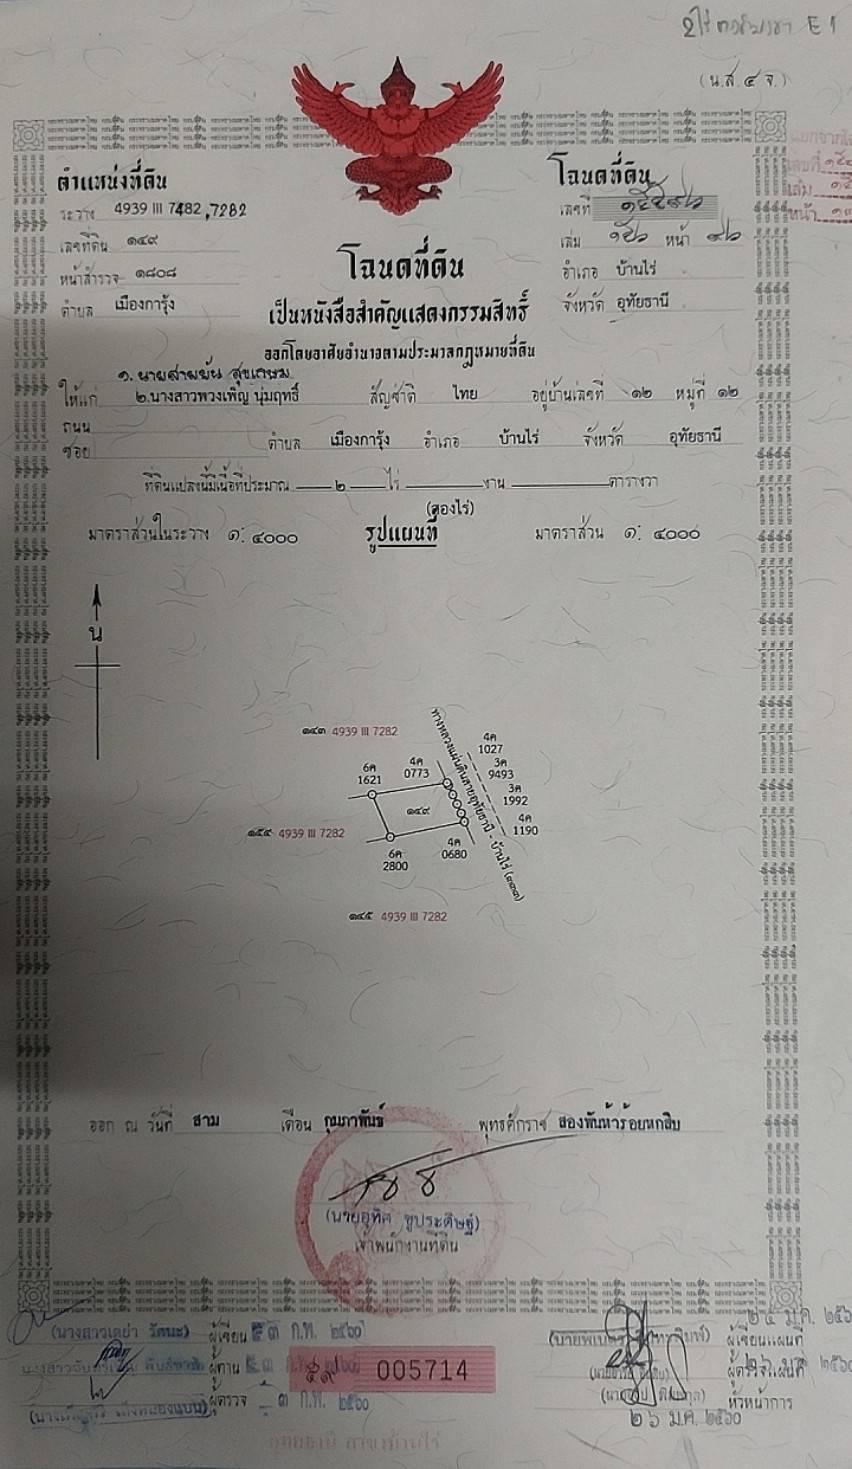 (น.ส.๔ จ.)
ตำแหน่งที่ดิน
ระวาง 4939 III 7482,7282
เลขที่ดิน ๑๔๙
หน้าสำรวจ ๑๘๐๘
ตำบล เมืองการุ้ง
โฉนดที่ดิน
เลขที่
เล่ม หน้า
อำเภอ บ้านไร่
จังหวัด อุทัยธานี
โฉนดที่ดิน
เป็นหนังสือสำคัญแสดงกรรมสิทธิ์
ออกโดยอาศัยอำนาจตามประมวลกฎหมายที่ดิน
๑. นายสายยัน สุขเกษม
ให้แก่ ๒.นางสาวพวงเพ็ญ นุ่มฤทธิ์ สัญชาติ ไทย อยู่บ้านเลขที่ ๑๒ หมู่ที่ ๑๒
ถนน
ซอย ตำบล เมืองการุ้ง อำเภอ บ้านไร่ จังหวัด อุทัยธานี
ที่ดินแปลงนี้มีเนื้อที่ประมาณ ๒ ไร่ งาน ตารางวา
(สองไร่)
มาตราส่วนในระวาง ๑: ๔๐๐๐ รูปแผนที่ มาตราส่วน ๑: ๔๐๐๐
น
๑๔๓ 4939 III 7282
ทางหลวงแผ่นดินสายอุทัยธานี - บ้านไร่ (๓๓๓)
4ค
1027
3ค
9493
3ค
1992
4ค
1190
6ค
1621
4ค
0773
๑๔๙
๑๕๔ 4939 III 7282
6ค
2800
4ค
0680
๑๔๕ 4939 III 7282
ออก ณ วันที่ สาม เดือน กุมภาพันธ์ พุทธศักราช สองพันห้าร้อยหกสิบ
(นายอุทิศ ชูประดิษฐ์)
เจ้าพนักงานที่ดิน
ผู้เขียน ๓ ก.พ. ๒๕๖๐
ผู้ทาน
ผู้ตรวจ ๓ ก.พ. ๒๕๖๐
005714
๒๔ ม.ค. ๒๕๖๐
ผู้เขียนแผนที่
ผู้ตรวจแผนที่
หัวหน้าการ
๒๖ ม.ค. ๒๕๖๐
อุทัยธานี สาขาบ้านไร่